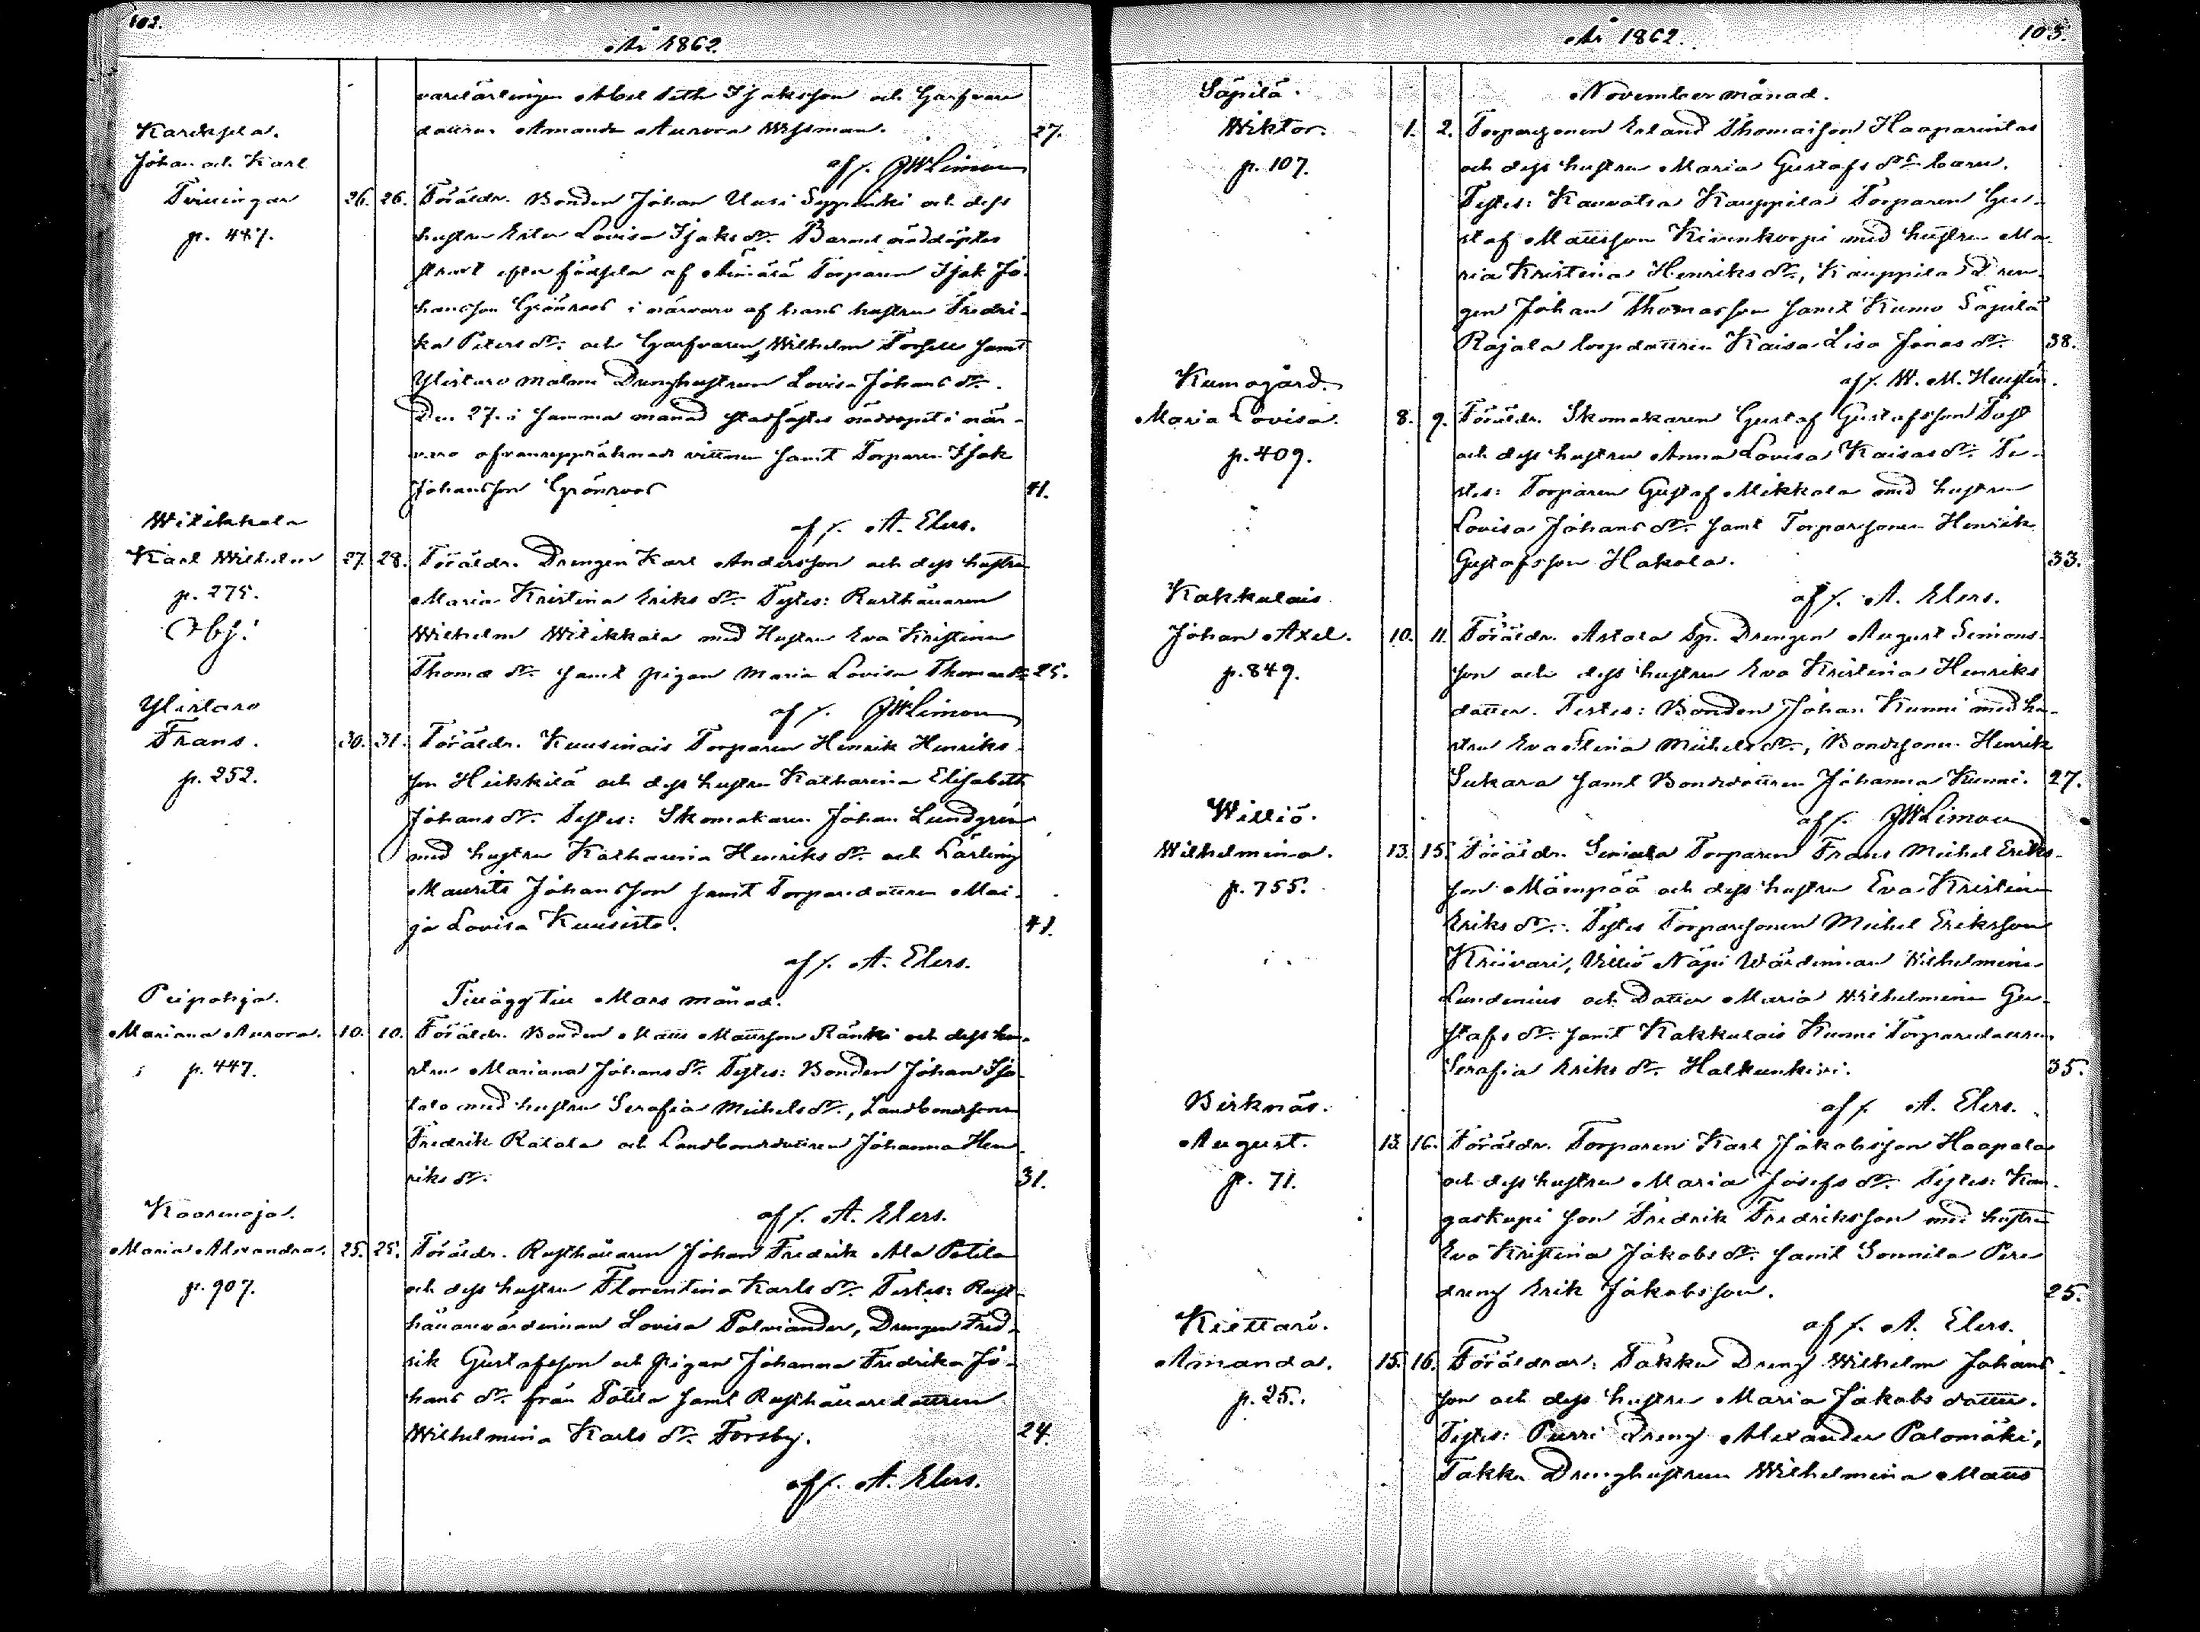 102.
År 1862.
varelärlingen Abel Seth Isaksson och Garfvare
dottren Amanda Aurora Wissman. 27.
af f. JWLimon
Karhiju
Johan och Karl
Tvillingar
p. 447.
26. 26. Föräldr. Bonden Johan Uusi Seppänki och dess
hustru Ester Lovisa Isaks dr. Barnet nöddöptes
strart efter födseln af Torparen Isak Jo-
hansson Grönroos i närvaro af hans hustru Fredri-
ka Peters dr. och Garfvaren Wilhelm Forsell samt
Ylistaro malmi Drenghustrun Lovisa Johans dr.
Den 27. i samma månad stadfästes nöddopet i när-
varo af vanuppräknade vittnen samt Torparen Isak
Johansson Grönroos 41.
af f. A. Elers.
Witikkala
Karl Wilhelm
p. 275.
Obs!
27. 28. Föräldr. Drengen Karl Andersson och dess hustru
Maria Kristina Eriks dr. Testes: Rusthållaren
Wilhelm Witikkala med Hustru Eva Kristina
Thomæ dr. samt pigan Maria Lovisa Thomædr. 25.
af f. JWLimon
Ylistaro
Frans.
p. 252.
30. 31. Föräldr. Kuusinais Torparen Henrik Henriks-
son Heikkilä och dess hustru Katharina Elisabeth
Johans dr. Testes: Skomakaren Johan Lundgrén
med hustru Katharina Henriks dr. och Lärling
Maurits Johansson samt Torparedottren Mai-
ja Lovisa Kuusisto. 41.
af f. A. Elers.
Tillägg till Mars månad.
Peipohja.
Mariana Aurora.
p. 447.
10. 10. Föräldr. Bonden Matts Mattsson Ränki och dess hu-
stru Mariana Johans dr. Testes: Bonden Johan Iso
talo med hustru Serafia Michels dr., Landbondsonen
Fredrik Ratala och Landbondedottren Johanna Hen-
riks dr. 31.
af f. A. Elers.
Kaarenoja.
Maria Alexandra.
p. 907.
25. 25. Föräldr. Rusthållaren Johan Fredrik Ala Potila
och dess hustru Florentina Karls dr. Testes: Rust-
hållarevärdinnan Lovisa Palmiander, Drengen Fred-
rik Gustafsson och pigan Johanna Fredrika Jo-
hans dr. från Potila samt Rusthållaredottren
Wilhelmina Karls dr. Forsby. 24.
af f. A. Elers.
År 1862.
103.
November månad.
Säpilä.
Wiktor.
p. 107.
1. 2. Torparesonen Erland Thomasson Haaparintas
och dess hustru Maria Gustafs drs barn.
Testes: Kauvatsa Kauppila Torparen Gu-
staf Mattsson Kivenkorpi med hustru Ma-
ria Kristina Henriks dr., Kauppila Dren-
gen Johan Thomasson samt Kumo Säpilä
Rajala torpdottren Kaisa Lisa Jonas dr. 38.
af f. W. M. Heurlin.
Kumogård.
Maria Lovisa.
p. 409.
8. 9. Föräldr. Skomakaren Gustaf Gustafsson Tast
och dess hustru Anna Lovisa Kaisas dr. Te-
stes: Torparen Gustaf Mikkola med hustru
Lovisa Johans dr. samt Torparsonen Henrik
Gustafsson Hakala. 33.
af f. A. Elers.
Kakkulais
Johan Axel.
p. 849.
10. 11. Föräldr. Astala Sp. Drengen August Simons-
son och dess hustru Eva Kristina Henriks
dotter. Testes: Bonden Johan Kunni med hu-
stru Eva Stina Michels dr., Bondsonen Henrik
Sukara samt Bondedottren Johanna Kunni. 27.
af f. JWLimon
Williö.
Wilhelmina.
p. 755.
13. 15. Föräldr. Torparen Frans Michel Eriks-
son Mäenpää och dess hustru Eva Kristina
Eriks dr. Testes Torparesonen Michel Eriksson
Kriivari, Villiö Näpi Wärdinnan Wilhelmina
Lundenius och Dotter Maria Wilhelmina Gu-
stafs dr. samt Kakkulais Kunni Torparedottren
Serafia Eriks dr. Halkunkivi. 35.
af f. A. Elers.
Birknäs.
August.
p. 71.
13. 16. Föräldr. Torparen Karl Jakobsson Haapala
och dess hustru Maria Josefs dr. Testes: Kan-
gaskupi son Fredrik Fredriksson med hustru
Eva Kristina Jakobs dr. samt Sonnila Pere
dreng Erik Jakobsson. 25.
af f. A. Elers.
Kiettarö.
Amanda.
p. 25.
15. 16. Föräldrar: Takku Dreng Wilhelm Johans-
son och dess hustru Maria Jakobs dotter.
Testes: Purri Dreng Alexander Palomäki,
Takku Drenghustrun Wilhelmina Matts